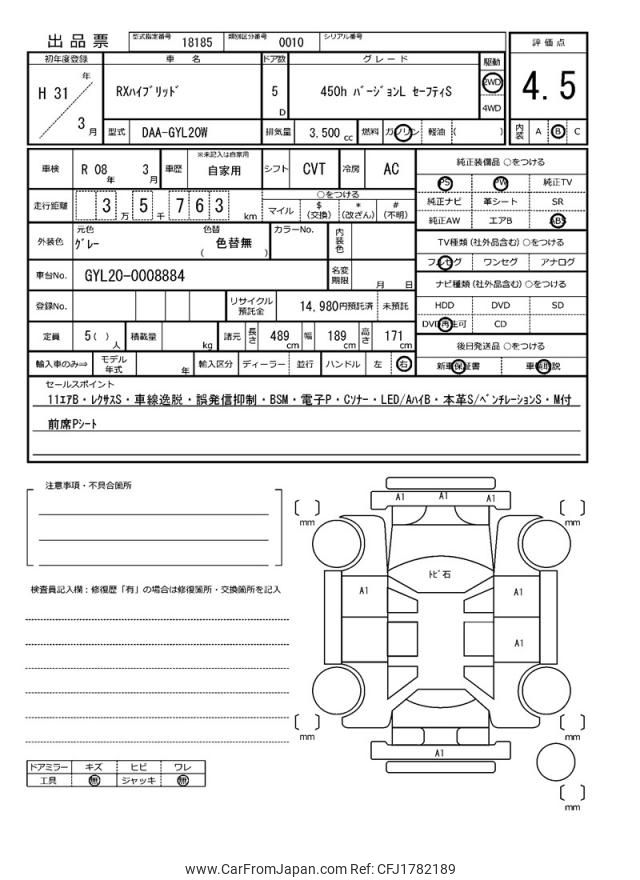 出品票 型式指定番号 18185 類別区分番号 0010 シリアル番号
評価点
4.5
内装 A B C
初年度登録 車名 ドア数 グレード 駆動
H 31 年 3 月 RXﾊｲﾌﾞﾘｯﾄﾞ 5 D 450h ﾊﾞｰｼﾞｮﾝL ｾｰﾌﾃｨS 2WD 4WD
型式 DAA-GYL20W 排気量 3,500 cc 燃料 ガソリン 軽油 ( )
車検 R 08 年 3 月 車歴 ※未記入は自家用 自家用 シフト CVT 冷房 AC
走行距離 3 万 5 千 7 6 3 km
○をつける
マイル $ (交換) * (改ざん) # (不明)
外装色 元色 ｸﾞﾚｰ 色替 色替無 ( ) カラーNo. 内装色
車台No. GYL20-0008884 名変期限 月 日
登録No. リサイクル預託金 14,980円預託済 未預託
定員 5( ) 人 積載量 kg 諸元 長さ 489 cm 幅 189 cm 高さ 171 cm
輸入車のみ⇒ モデル年式 年 輸入区分 ディーラー 並行 ハンドル 左 右
純正装備品 ○をつける
PS PW 純正TV
純正ナビ 革シート SR
純正AW エアB ABS
TV種類 (社外品含む) ○をつける
フルセグ ワンセグ アナログ
ナビ種類 (社外品含む) ○をつける
HDD DVD SD
DVD再生可 CD
後日発送品 ○をつける
新車保証書 車輌取説
セールスポイント
11ｴｱB・ﾚｸｻｽS・車線逸脱・誤発信抑制・BSM・電子P・Cｿﾅｰ・LED/AﾊｲB・本革S/ﾍﾞﾝﾁﾚｰｼｮﾝS・M付
前席Pｼｰﾄ
注意事項・不具合箇所
検査員記入欄：修復歴「有」の場合は修復箇所・交換箇所を記入
ドアミラー キズ ヒビ ワレ
工具 無 ジャッキ 無
A1 A1 A1
mm mm
ﾄﾋﾞ石
A1 A1
A1
mm mm
A1
mm
www.CarFromJapan.com Ref: CFJ1782189